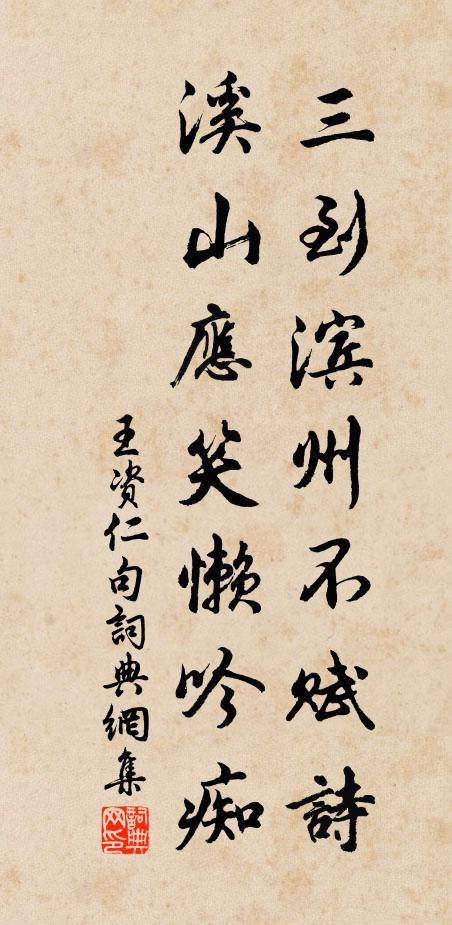 三到滨州不赋詩
溪山應笑懶吟痴
王資仁句詞典網集
詞典网印